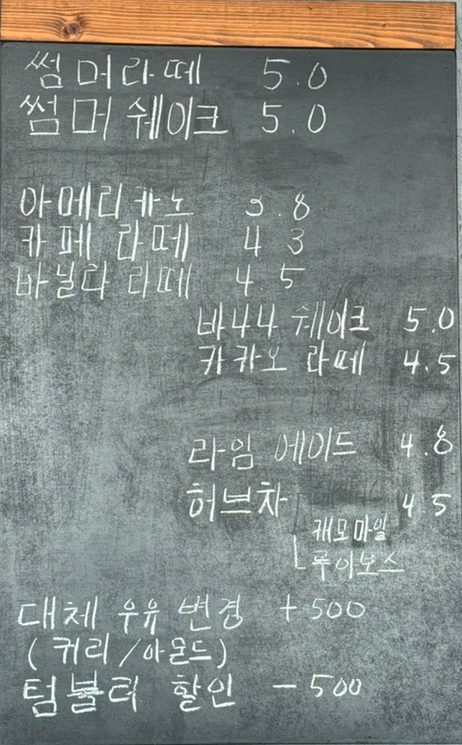 썸머라떼 5.0
썸머 쉐이크 5.0
아메리카노 3.8
카페 라떼 4 3
바닐라 라떼 4.5
바나나 쉐이크 5.0
카카오 라떼 4.5
라임 에이드 4.8
허브차 4.5
캐모마일
루이보스
대체 우유 변경 +500
(귀리/아몬드)
텀블러 할인 -500